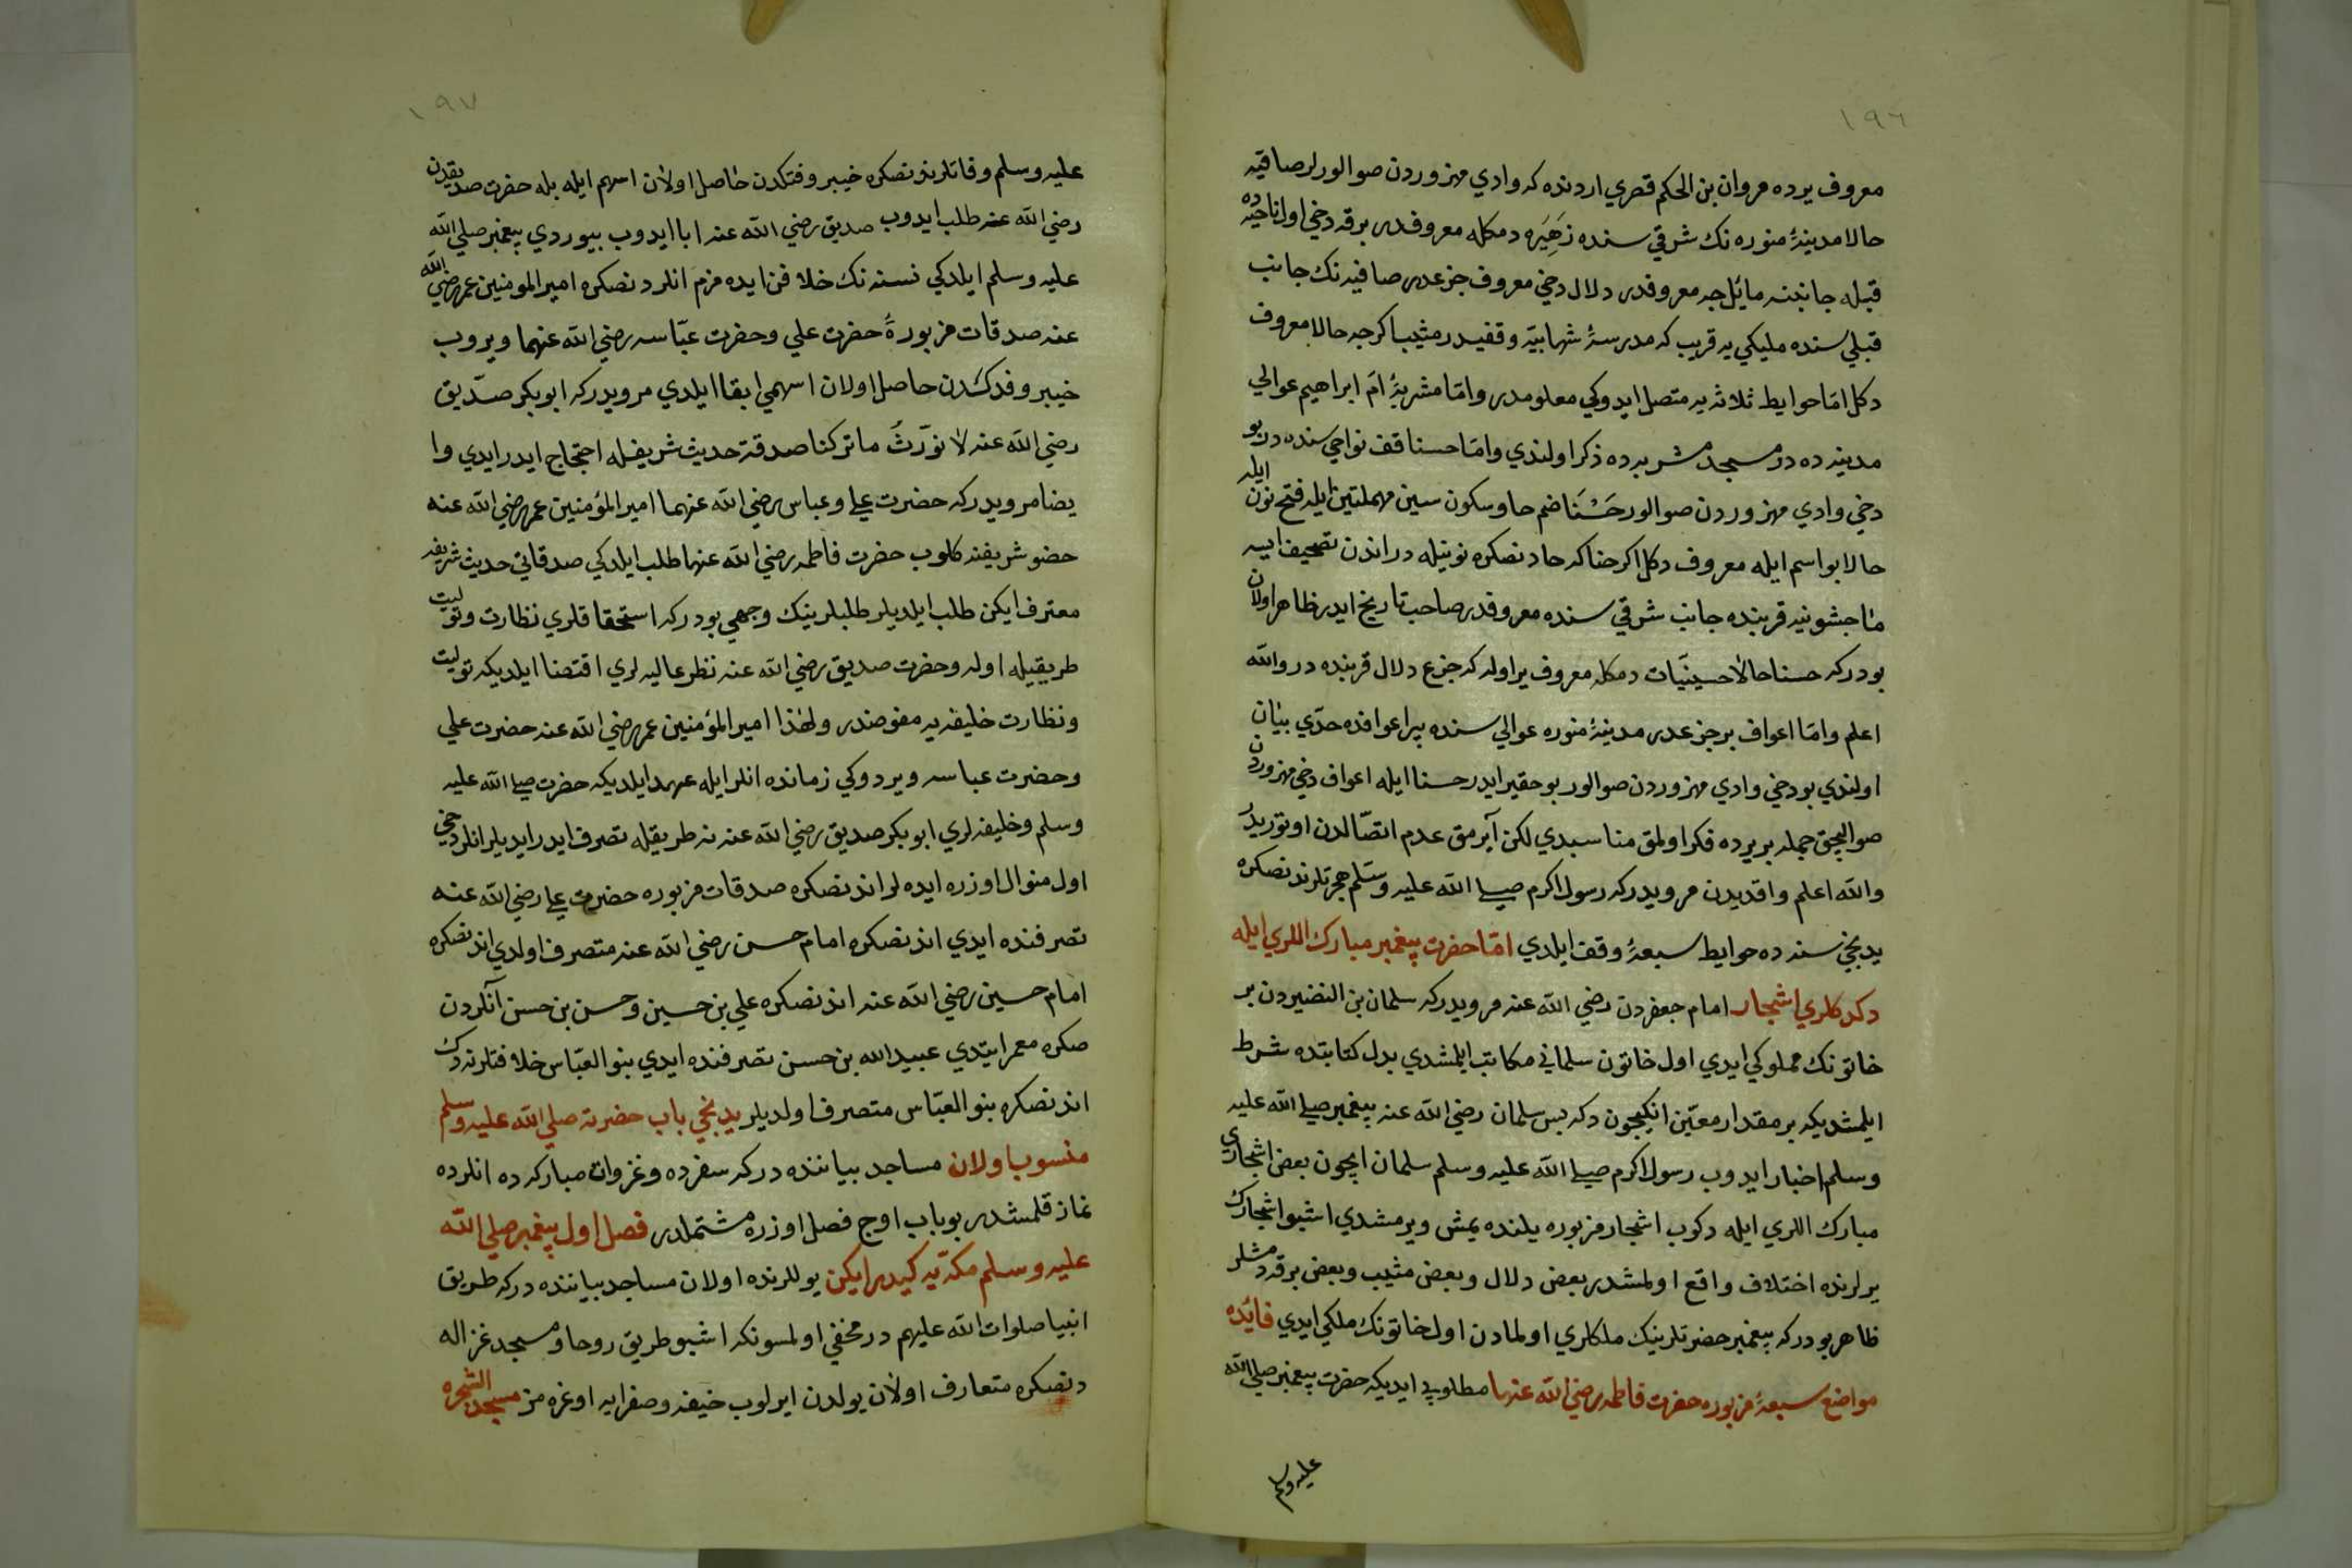 ١٩٦
معروف یرده مروان بن الحکم قصري اردنده که وادي مهزوردن صوالورلر صافیه
حالا مدینۀ منوره نك شرقي سنده زَهِیَره دمکله معروفدر برقه دخي اول ناحیه ده
قبله جانبنه مائلجه معروفدر دلال دخي معروف جزعدر صافیه نك جانب
قبلي سنده ملیکي یه قریب که مدرسۀ شهابیّه وقفیدر مثیب اکرچه حالا معروف
دکل امّا حوایط ثلاثه یه متصل ایدوکي معلومدر وامّا مشربۀ امّ ابراهیم عوالي
مدینه ده در مسجد مشربه ده ذکر اولندي وامّا حسنا قف نواحي سنده در بو
دخي وادي مهزوردن صوالور حَسْنَا ضم حا وسکون سین مهملتین ایله فتح نون ایله
حالا بو اسم ایله معروف دکل اکر حنا که حادنصکره نونیله در اندن تصحیف ایسه
ماجشونیه قربنده جانب شرقي سنده معروفدر صاحب تاریخ ایدر ظاهر اولان
بودرکه حسنا حالا حسینیّات دمکله معروف یر اوله که جزع دلال قربنده در والله
اعلم وامّا اعواف بر جزعدر مدینۀ منوره عوالي سنده بیر اعوافده حدّي بیان
اولندي بو دخي وادي مهزوردن صوالور بو حقیر ایدر حسنا ایله اعواف دخي مهزوردن
صوالیجق جمله بر یرده ذکر اولمق مناسبدي لکن آیرمق عدم اتصّالدن اوتوریدر
والله اعلم واقدیدن مرویدرکه رسول اکرم صلی الله علیه وسّلم هجرتلرندنصکره
یدنجي سنه ده حوایط سبعۀ وقف ایلدي امّا حضرت پیغمبر مبارك اللري ایله
دکدکلري اشجار امام جعفردن رضي الله عنه مرویدرکه سلمان بن النضیردن بر
خاتونك مملوکي ایدي اول خاتون سلماني مکاتب ایلمشدي بدل کتابتده شرط
ایلمشدیکه بر مقدار معیّن انکیچون دکه بس سلمان رضي الله عنه پیغمبر صلی الله علیه
وسلم اخبار ایدوب رسول اکرم صلی الله علیه وسلم سلمان ایچون بعض اشجاري
مبارك اللري ایله دکوب اشجار مزبوره یلنده یمش ویرمشدي اشبو اشجارك
یرلرنده اختلاف واقع اولمشدر بعض دلال وبعض مثیب وبعض برقه دمشلر
ظاهر بودرکه پیغمبر حضرتلرینك ملکلري اولمادن اول خاتونك ملکي ایدي فائده
مواضع سبعۀ مزبوره حضرت فاطمه رضي الله عنها مطلوبي ایدیکه حضرت پیغمبر صلي الله
علیه وسلم
١٩٧
علیه وسلم وفاتلرندنصکره خیبر وفدکدن حاصل اولان اسهم ایله بله حضرت صدیقدن
رضي الله عنه طلب ایدوب صدیق رضي الله عنه ابا ایدوب بیوردي پیغمبر صلي الله
علیه وسلم ایلدکي نسنه نك خلافن ایده مزم انلردنصکره امیر المومنین عمر رضي الله
عنه صدقات مزبورۀ حضرت علي وحضرت عبّاسه رضي الله عنهما ویروب
خیبر وفدکدن حاصل اولان اسهمي ابقا ایلدي مرویدرکه ابو بکر صدّیق
رضي الله عنه لا نورَثُ ما ترکنا صدقة حدیث شریفله احتجاج ایدر ایدي وا
یضا مرویدرکه حضرت علی وعباس رضي الله عنهما امیر المؤمنین عمر رضي الله عنه
حضو شریفنه کلوب حضرت فاطمه رضي الله عنها طلب ایلدکي صدقاتي حدیث شریفه
معترف ایکن طلب ایلدیلر طلبلرینك وجهي بودرکه استحقاقلري نظارت وتولیت
طریقیله اوله وحضرت صدیق رضي الله عنه نظر عالیه لري اقتضا ایلدیکه تولیت
ونظارت خلیفه یه مفوضدر ولهذا امیر المؤمنین عمر رضي الله عنه حضرت علي
وحضرت عباسه ویردوکي زمانده انلر ایله عهد ایلدیکه حضرت صلی الله علیه
وسلم وخلیفه لري ابو بکر صدیق رضي الله عنه نه طریقله تصرف ایدر ایدیلر انلر دخي
اول منوال اوزره ایده لر اندنصکره صدقات مزبوره حضرت علی رضي الله عنه
تصرفنده ایدي اندنصکره امام حسن رضي الله عنه متصرف اولدي اندنصکره
امام حسین رضي الله عنه اندنصکره علي بن حسین وحسن بن حسن آنلردن
صکره معمر ایتدي عبید الله بن حسن تصرفنده ایدي بنو العبّاس خلافتلرنه دك
اندنصکره بنو العبّاس متصرف اولدیلر یدنجي باب حضرته صلي الله علیه وسلم
منسوب اولان مساجد بیاننده درکه سفرده وغزوات مبارکه ده انلرده
نماز قلمشدر بو باب اوج فصل اوزره مشتملدر فصل اول پیغمبر صلي الله
علیه وسلم مکّه یه کیدر ایکن یوللرنده اولان مساجد بیاننده درکه طریق
انبیا صلوات الله علیهم در مخفي اولمسونکه اشبو طریق روحا ومسجد غزاله
دنصکره متعارف اولان یولدن ایرلوب خیفه وصفرایه اوغره مز مسجد الشجره